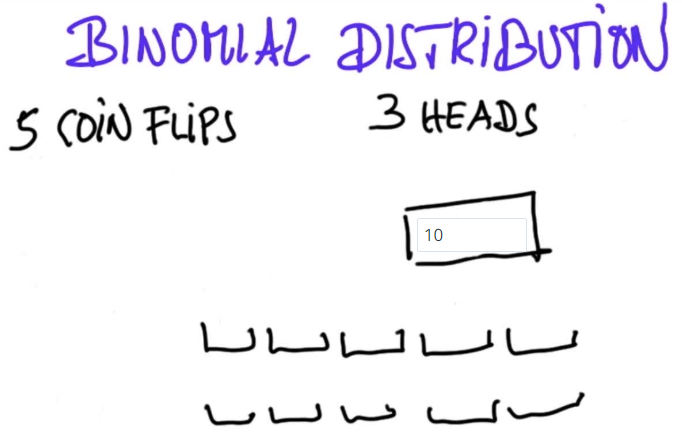 BINOMIAL DISTRIBUTION
5 COIN FLIPS 3 HEADS
10